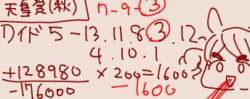 天皇賞(秋) 7-9-③
ワイド 5-13.11.8③.12
4.10.1
+128980 × 200=1600
-176000 -1600